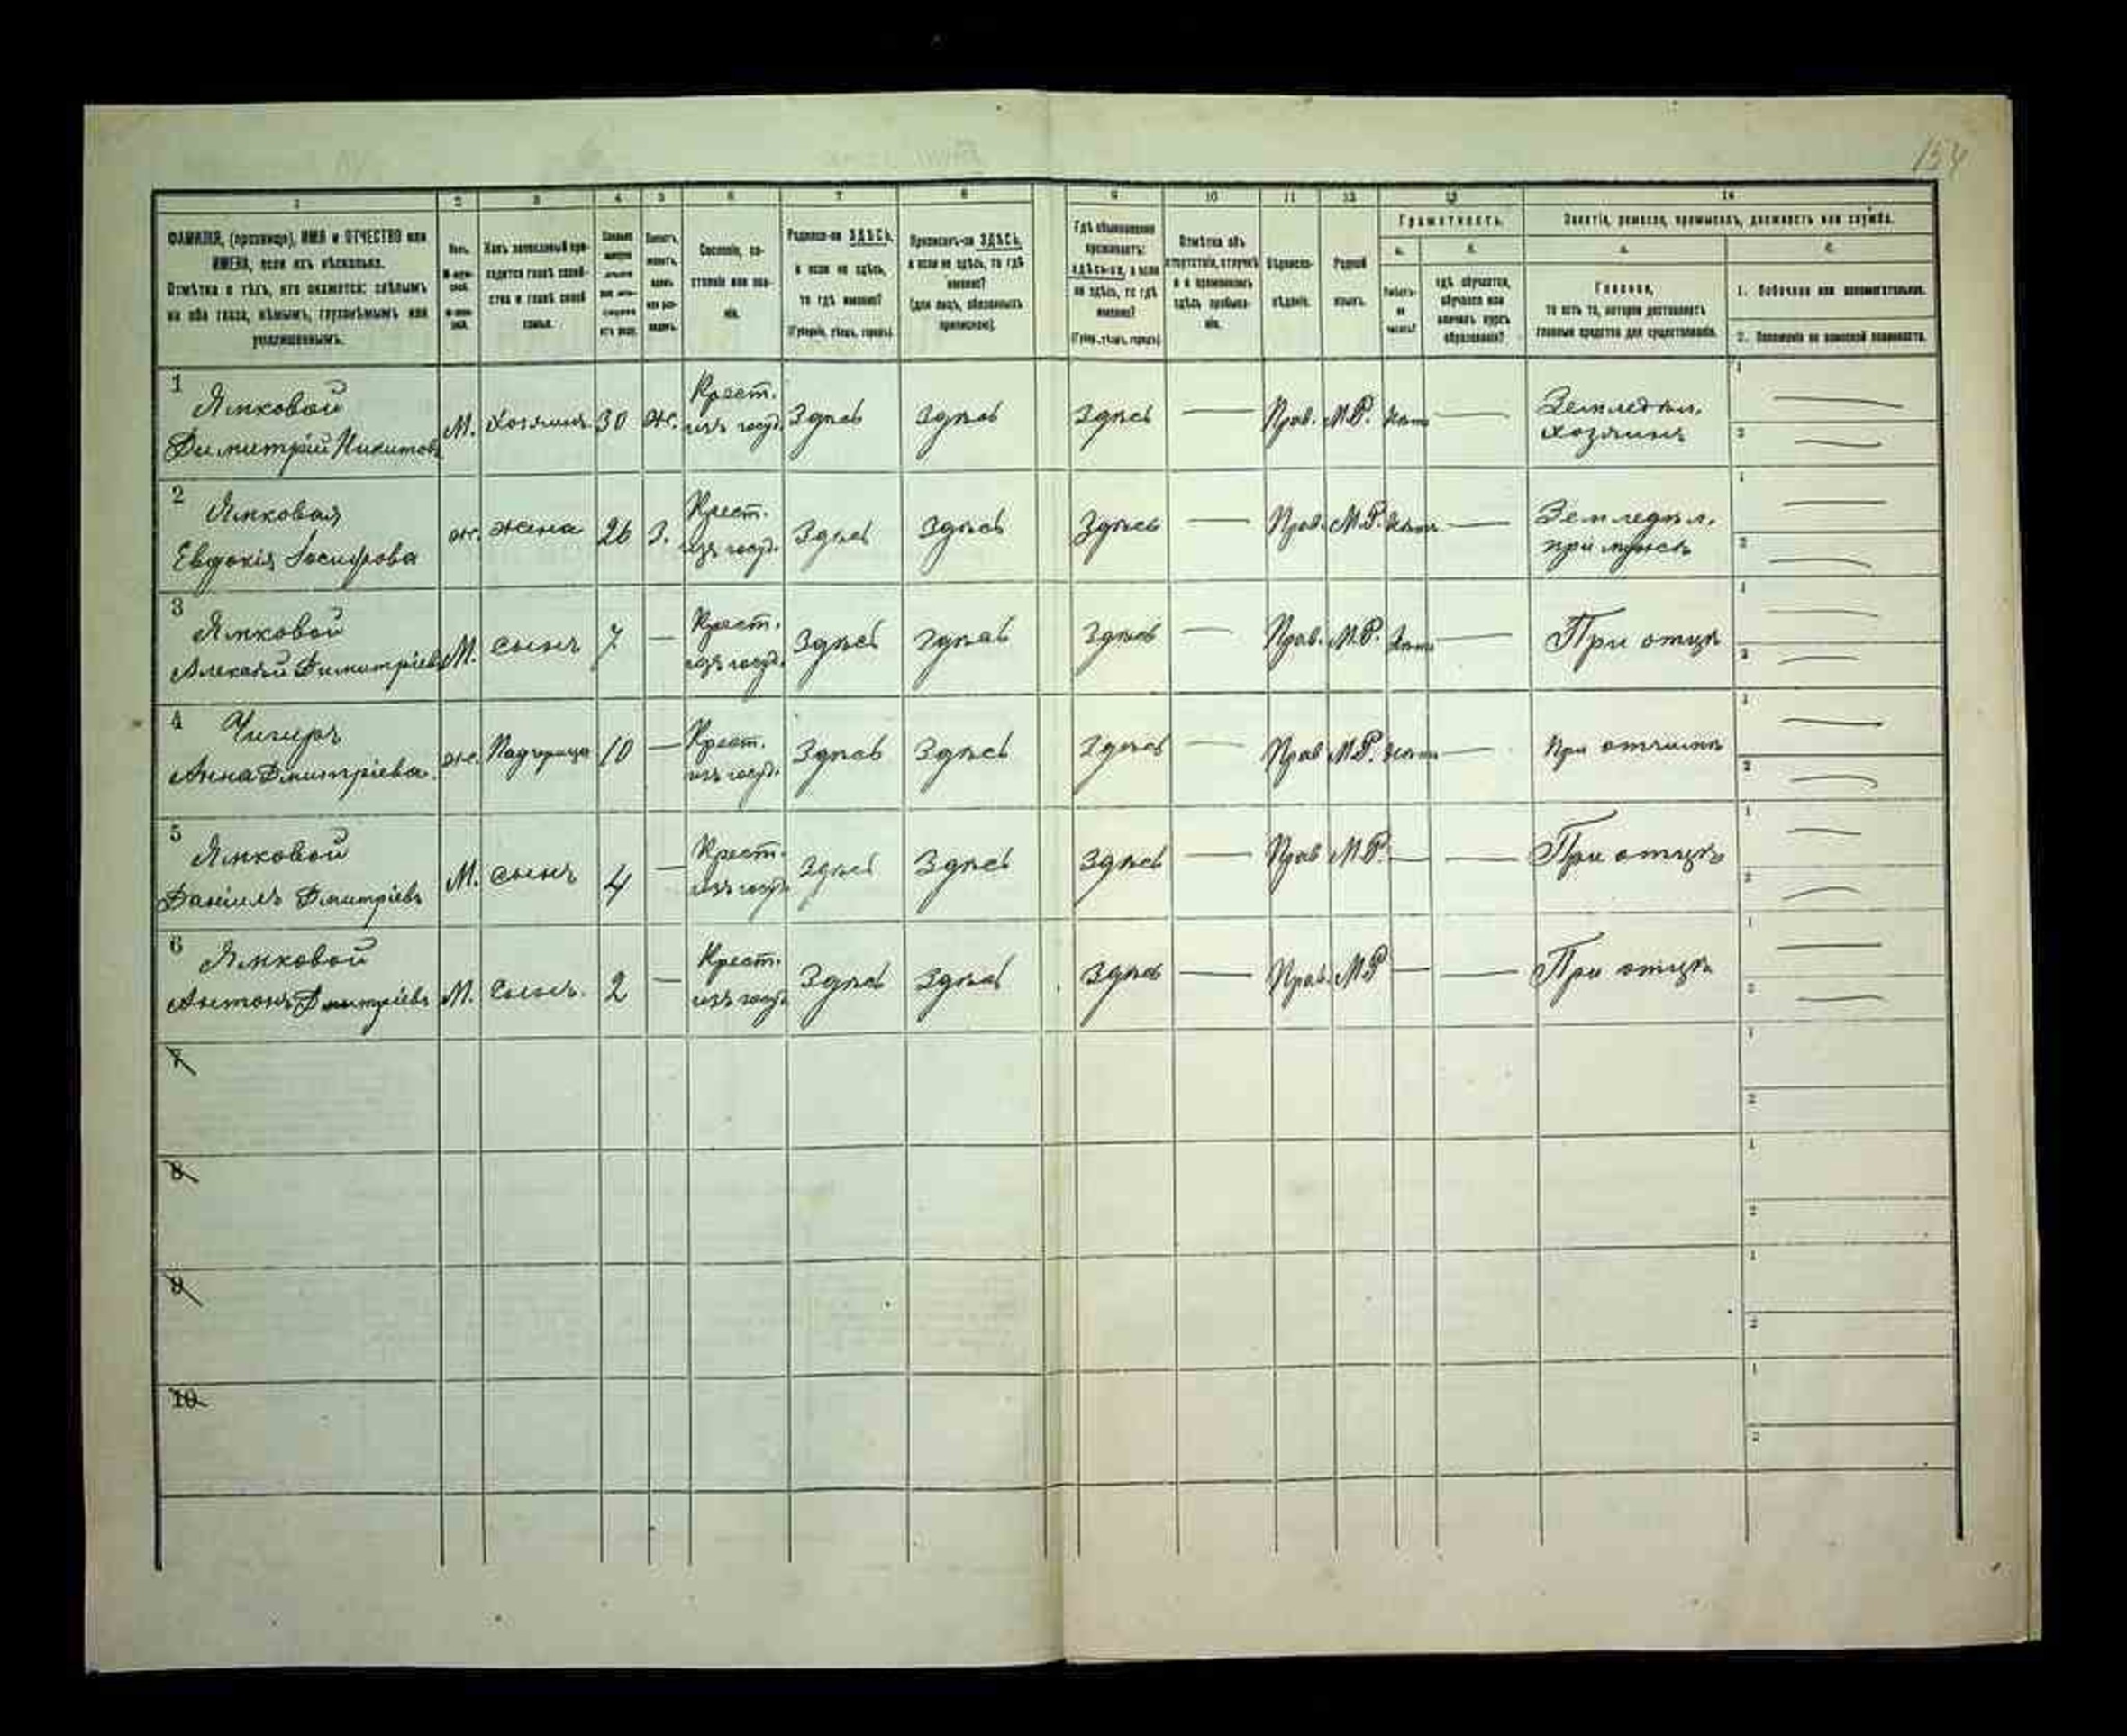 154
1 2 3 4 5 6 7 8 9 10 11 12 13 14
ФАМИЛІЯ, (прозвище), ИМЯ и ОТЧЕСТВО или
ИМЕНА, если ихъ нѣсколько.
Отмѣтка о тѣхъ, кто окажется: слѣпымъ
на оба глаза, нѣмымъ, глухонѣмымъ или
умалишеннымъ.
Полъ.
М-муж-
ской.
Ж-жен-
скій.
Какъ записанный при-
ходится главѣ хозяй-
ства и главѣ своей
семьи.
Сословіе, со-
стояніе или зва-
ніе.
Родился-ли ЗДѢСЬ,
а если не здѣсь,
то гдѣ именно?
(Губернія, уѣздъ, городъ).
Приписанъ-ли ЗДѢСЬ,
а если не здѣсь, то гдѣ
именно?
(для лицъ, обязанныхъ
припискою).
Гдѣ обыкновенно
проживаетъ:
здѣсь-ли, а если
не здѣсь, то гдѣ
именно?
(Губер., уѣздъ, городъ).
Отмѣтка объ
отсутствіи, отлучкѣ
и о временномъ
здѣсь пребыва-
ніи.
Вѣроиспо-
вѣданіе.
Родной
языкъ.
Грамотность.
а.
Умѣетъ-
ли
читать?
б.
гдѣ обучается,
обучался или
кончилъ курсъ
образованія?
Занятіе, ремесло, промыселъ, должность или служба.
а.
Главное,
то есть то, которое доставляетъ
главныя средства для существованія.
б.
1. Побочное или вспомогательное.
2. Положеніе по воинской повинности.
1 Ямковой
Димитрій Никитовъ М. Хозяинъ 30 Ж. Крест. изъ госуд. Здѣсь Здѣсь Здѣсь — Прав. М.Р. Нѣтъ — Земледѣл. хозяинъ 1 — 2 —
2 Ямковая
Евдокія Іосифова ж. жена 26 З. Крест. изъ госуд. Здѣсь Здѣсь Здѣсь — Прав. М.Р. Нѣтъ — Земледѣл. при мужѣ 1 — 2 —
3 Ямковой
Алексѣй Димитріевъ М. сынъ 7 — Крест. изъ госуд. Здѣсь Здѣсь Здѣсь — Прав. М.Р. Нѣтъ — При отцѣ 1 — 2 —
4 Чигиръ
Анна Дмитріева. ж. Падчерица 10 — Крест. изъ госуд. Здѣсь Здѣсь Здѣсь — Прав М.Р. Нѣтъ — При отчимѣ 1 — 2 —
5 Ямковой
Даніилъ Дмитріевъ М. сынъ 4 — Крест. изъ госуд. Здѣсь Здѣсь Здѣсь — Прав М.Р. — — При отцѣ 1 — 2 —
6 Ямковой
Антонъ Дмитріевъ М. Сынъ. 2 — Крест. изъ госуд. Здѣсь Здѣсь Здѣсь — Прав. М.Р — — При отцѣ 1 — 2 —
7 1 2
8 1 2
9 1 2
10 1 2